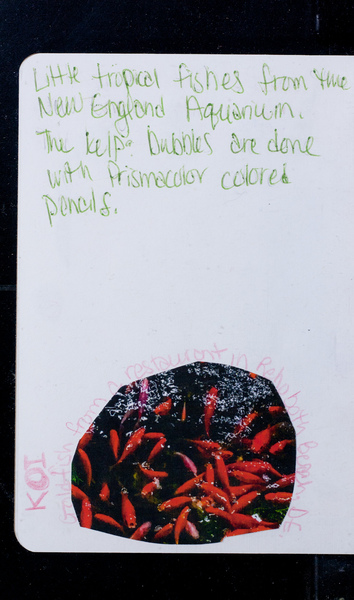 Little tropical fishes from the
New England Aquarium.
The kelp & bubbles are done
with Prismacolor colored
pencils.
KOI
fish from a restaurant in Rehoboth Beach, DE.